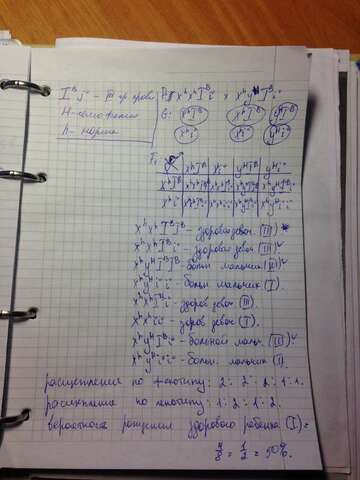 I^B i - III гр. крови
H - гемофилия
h - норма
P: x^h x^h I^B i × x^h y^H I^B i
G: x^h I^B x^h I^B y^H I^B
x^h i x^h i y^H i
F₁
x^h I^B x^h i y^H I^B y^H i
x^h I^B
x^h i
x^h x^h I^B I^B - здоровая девоч. (III)
x^h x^h I^B i - здоровая девоч (III)
x^h y^H I^B I^B - больн мальчик (III)
x^h y^H i i - больн мальчик (I).
x^h x^h I^B i - здоров девоч (III).
x^h x^h i i - здоров девоч (I).
x^h y^H I^B i - больной мальч. (III)
x^h y^H i i - больн. мальчик (I).
расщепление по фенотипу: 2:2:2:1:1.
расщепление по генотипу: 1:2:1:2.
вероятность рождения здорового ребенка (I) =
4/8 = 1/2 = 50%.